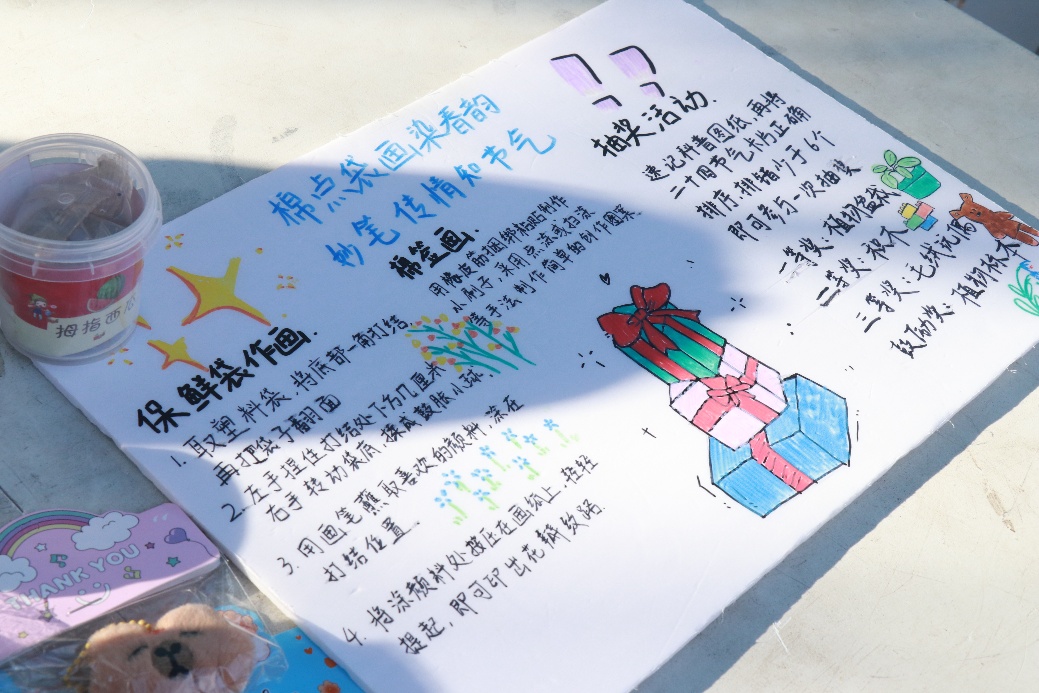 棉点袋画染春韵
妙笔传情知节气
棉签画.
用橡皮筋捆绑粘贴制作
小刷子,采用点涂或扫涂
等手法制作简单的创作图案.
保鲜袋作画.
1. 取塑料袋,将底部一角打结
再把袋子翻面
2. 左手捏住打结处下方几厘米
右手转动袋底,搓成鼓胀小球.
3. 用画笔蘸取喜欢的颜料,涂在
打结位置.
4. 将涂颜料处按压在画纸上,轻轻
提起,即可印出花瓣纹路.
抽奖活动.
速记拼音图纸,再将
二十四节气卡片正确
排序,排错少于6个
即可参与一次抽奖
一等奖:植物盆栽
二等奖:积木
三等奖:毛绒玩偶
鼓励奖:植物做本
拇指西瓜
THANK YOU